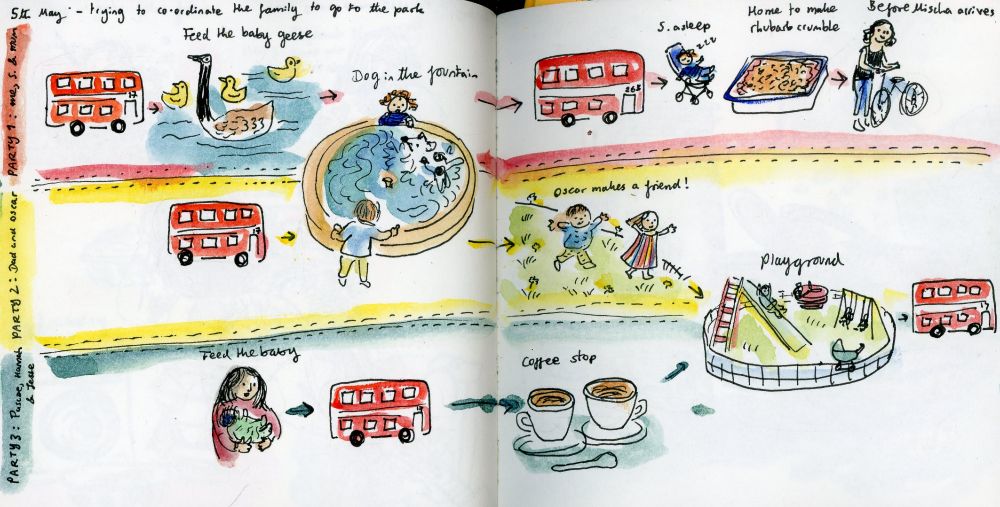 5th May - trying to co-ordinate the family to go to the park
PARTY 1: me, S. & mum
Feed the baby geese
Dog in the fountain
S. asleep
Home to make
rhubarb crumble
Before Mischa arrives
PARTY 2: Dad and Oscar
Oscar makes a friend!
Playground
PARTY 3: Pascoe, Hannah
& Jesse
Feed the baby
Coffee stop